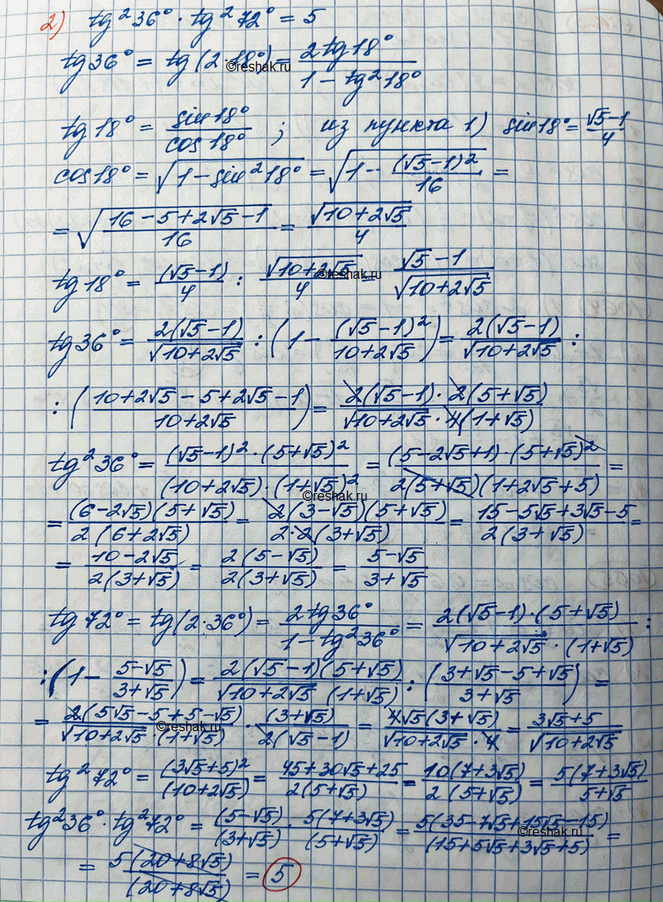 2) tg²36° · tg²72° = 5
tg36° = tg(2·18°) = 2tg18° / (1 − tg²18°)
©reshak.ru
tg18° = sin18° / cos18° ; из пункта 1) sin18° = (√5−1)/4
cos18° = √(1 − sin²18°) = √(1 − (√5−1)²/16) =
= √((16 − 5 + 2√5 − 1)/16) = √(10+2√5)/4
tg18° = (√5−1)/4 : √(10+2√5)/4 = (√5−1)/√(10+2√5)
©reshak.ru
tg36° = 2(√5−1)/√(10+2√5) : (1 − (√5−1)²/(10+2√5)) = 2(√5−1)/√(10+2√5) :
: ((10+2√5 − 5+2√5 −1)/(10+2√5)) = 2(√5−1)·2(5+√5) / (√(10+2√5)·4(1+√5))
tg²36° = (√5−1)²·(5+√5)² / ((10+2√5)·(1+√5)²) = (5−2√5+1)·(5+√5)² / (2(5+√5)(1+2√5+5)) =
©reshak.ru
= (6−2√5)(5+√5) / (2(6+2√5)) = 2(3−√5)(5+√5) / (2·2(3+√5)) = (15−5√5+3√5−5) / (2(3+√5)) =
= (10−2√5)/(2(3+√5)) = 2(5−√5)/(2(3+√5)) = (5−√5)/(3+√5)
tg72° = tg(2·36°) = 2tg36°/(1−tg²36°) = 2(√5−1)·(5+√5) / (√(10+2√5)·(1+√5)) :
: (1 − (5−√5)/(3+√5)) = 2(√5−1)(5+√5) / (√(10+2√5) (1+√5)) : ((3+√5−5+√5)/(3+√5)) =
= 2(5√5−5+5−√5) / (√(10+2√5)·(1+√5)) · (3+√5)/(2(√5−1)) = 4√5(3+√5) / (√(10+2√5)·4) = (3√5+5)/√(10+2√5)
©reshak.ru
tg²72° = (3√5+5)²/(10+2√5) = (45+30√5+25)/(2(5+√5)) = 10(7+3√5)/(2(5+√5)) = 5(7+3√5)/(5+√5)
tg²36°·tg²72° = (5−√5)/(3+√5) · 5(7+3√5)/(5+√5) = 5(35−7√5+15√5−15)/(15+5√5+3√5+5) =
©reshak.ru
= 5(20+8√5)/(20+8√5) = 5